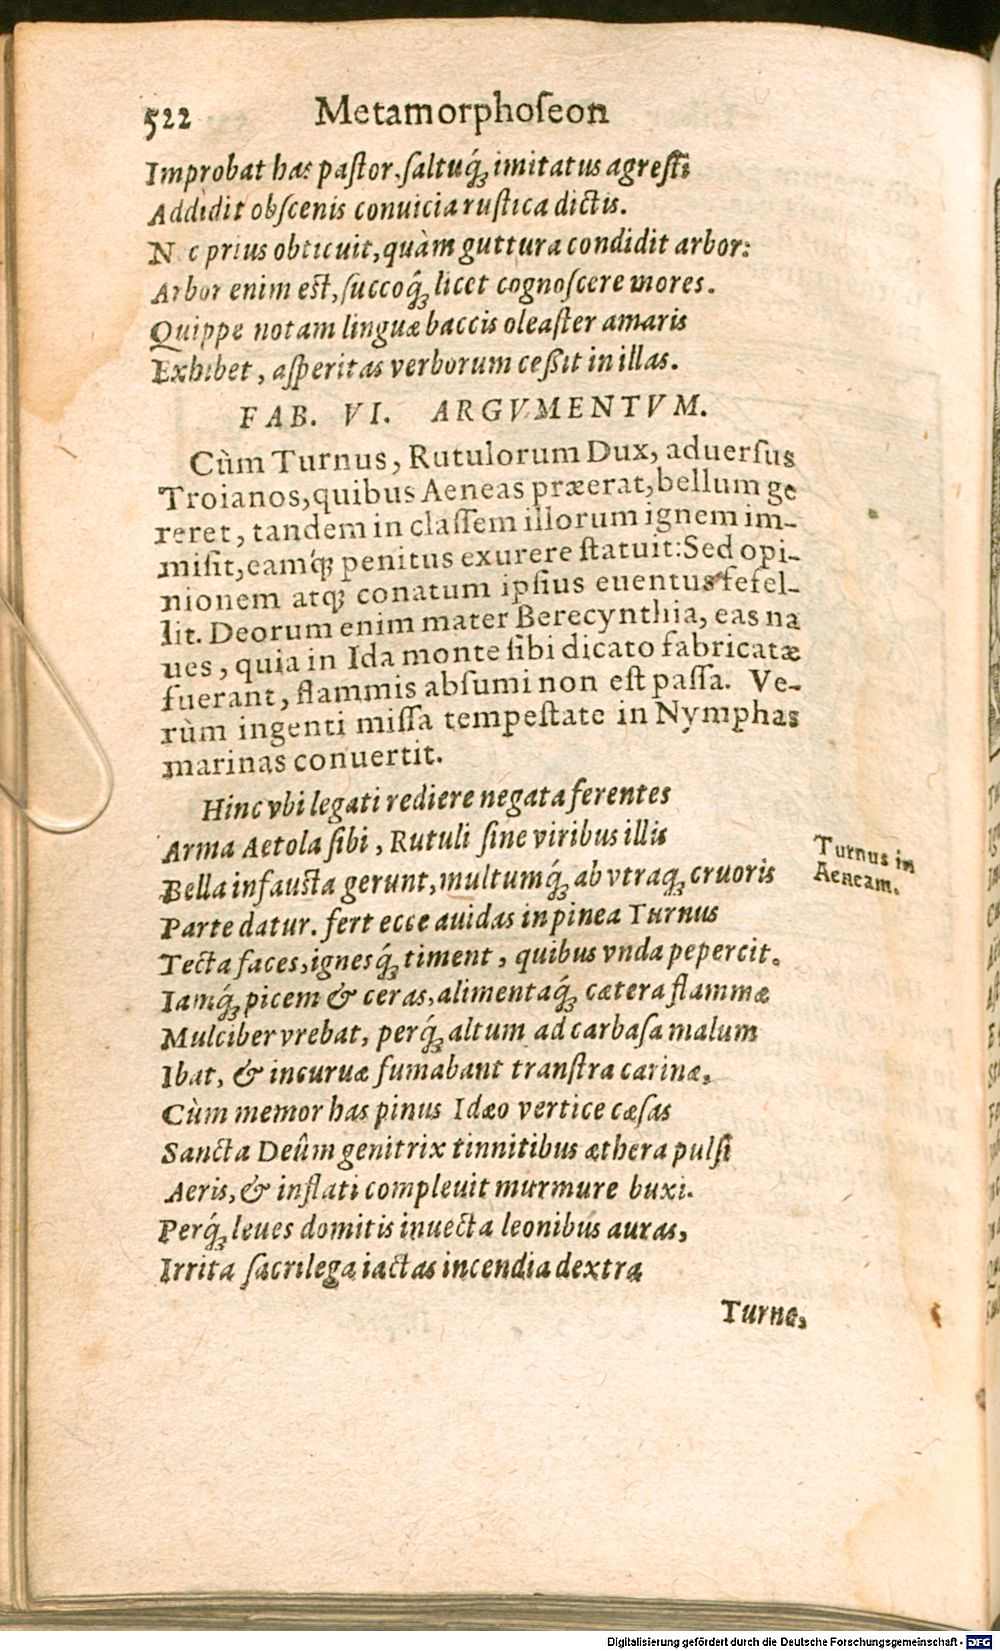 522 Metamorphoſeon
Improbat has paſtor, ſaltuq́; imitatus agreſti
Addidit obſcenis conuicia ruſtica dictis.
N c prius obticuit, quàm guttura condidit arbor:
Arbor enim eſt, ſuccoq́; licet cognoſcere mores.
Quippe notam linguæ baccis oleaſter amaris
Exhibet, aſperitas verborum ceſsit in illas.
FAB. VI. ARGVMENTVM.
Cùm Turnus, Rutulorum Dux, aduerſus
Troianos, quibus Aeneas præerat, bellum ge
reret, tandem in claſſem illorum ignem im-
miſit, eamq́; penitus exurere ſtatuit: Sed opi-
nionem atq; conatum ipſius euentus fefel-
lit. Deorum enim mater Berecynthia, eas na
ues, quia in Ida monte ſibi dicato fabricatæ
fuerant, flammis abſumi non eſt paſſa. Ve-
rùm ingenti miſſa tempeſtate in Nymphas
marinas conuertit.
Hinc vbi legati rediere negata ferentes
Arma Aetola ſibi, Rutuli ſine viribus illis
Bella infauſta gerunt, multumq́; ab vtraq; cruoris
Parte datur. fert ecce auidas in pinea Turnus
Tecta faces, ignesq́; timent, quibus vnda pepercit.
Iamq́; picem & ceras, alimentaq́; cætera flammæ
Mulciber vrebat, perq́; altum ad carbaſa malum
Ibat, & incuruæ fumabant tranſtra carinæ,
Cùm memor has pinus Idæo vertice cæſas
Sancta Deûm genitrix tinnitibus æthera pulſi
Aeris, & inflati compleuit murmure buxi.
Perq́; leues domitis inuecta leonibus auras,
Irrita ſacrilega iactas incendia dextra
Turne,
Turnus in
Aeneam.
Digitalisierung gefördert durch die Deutsche Forschungsgemeinschaft - DFG